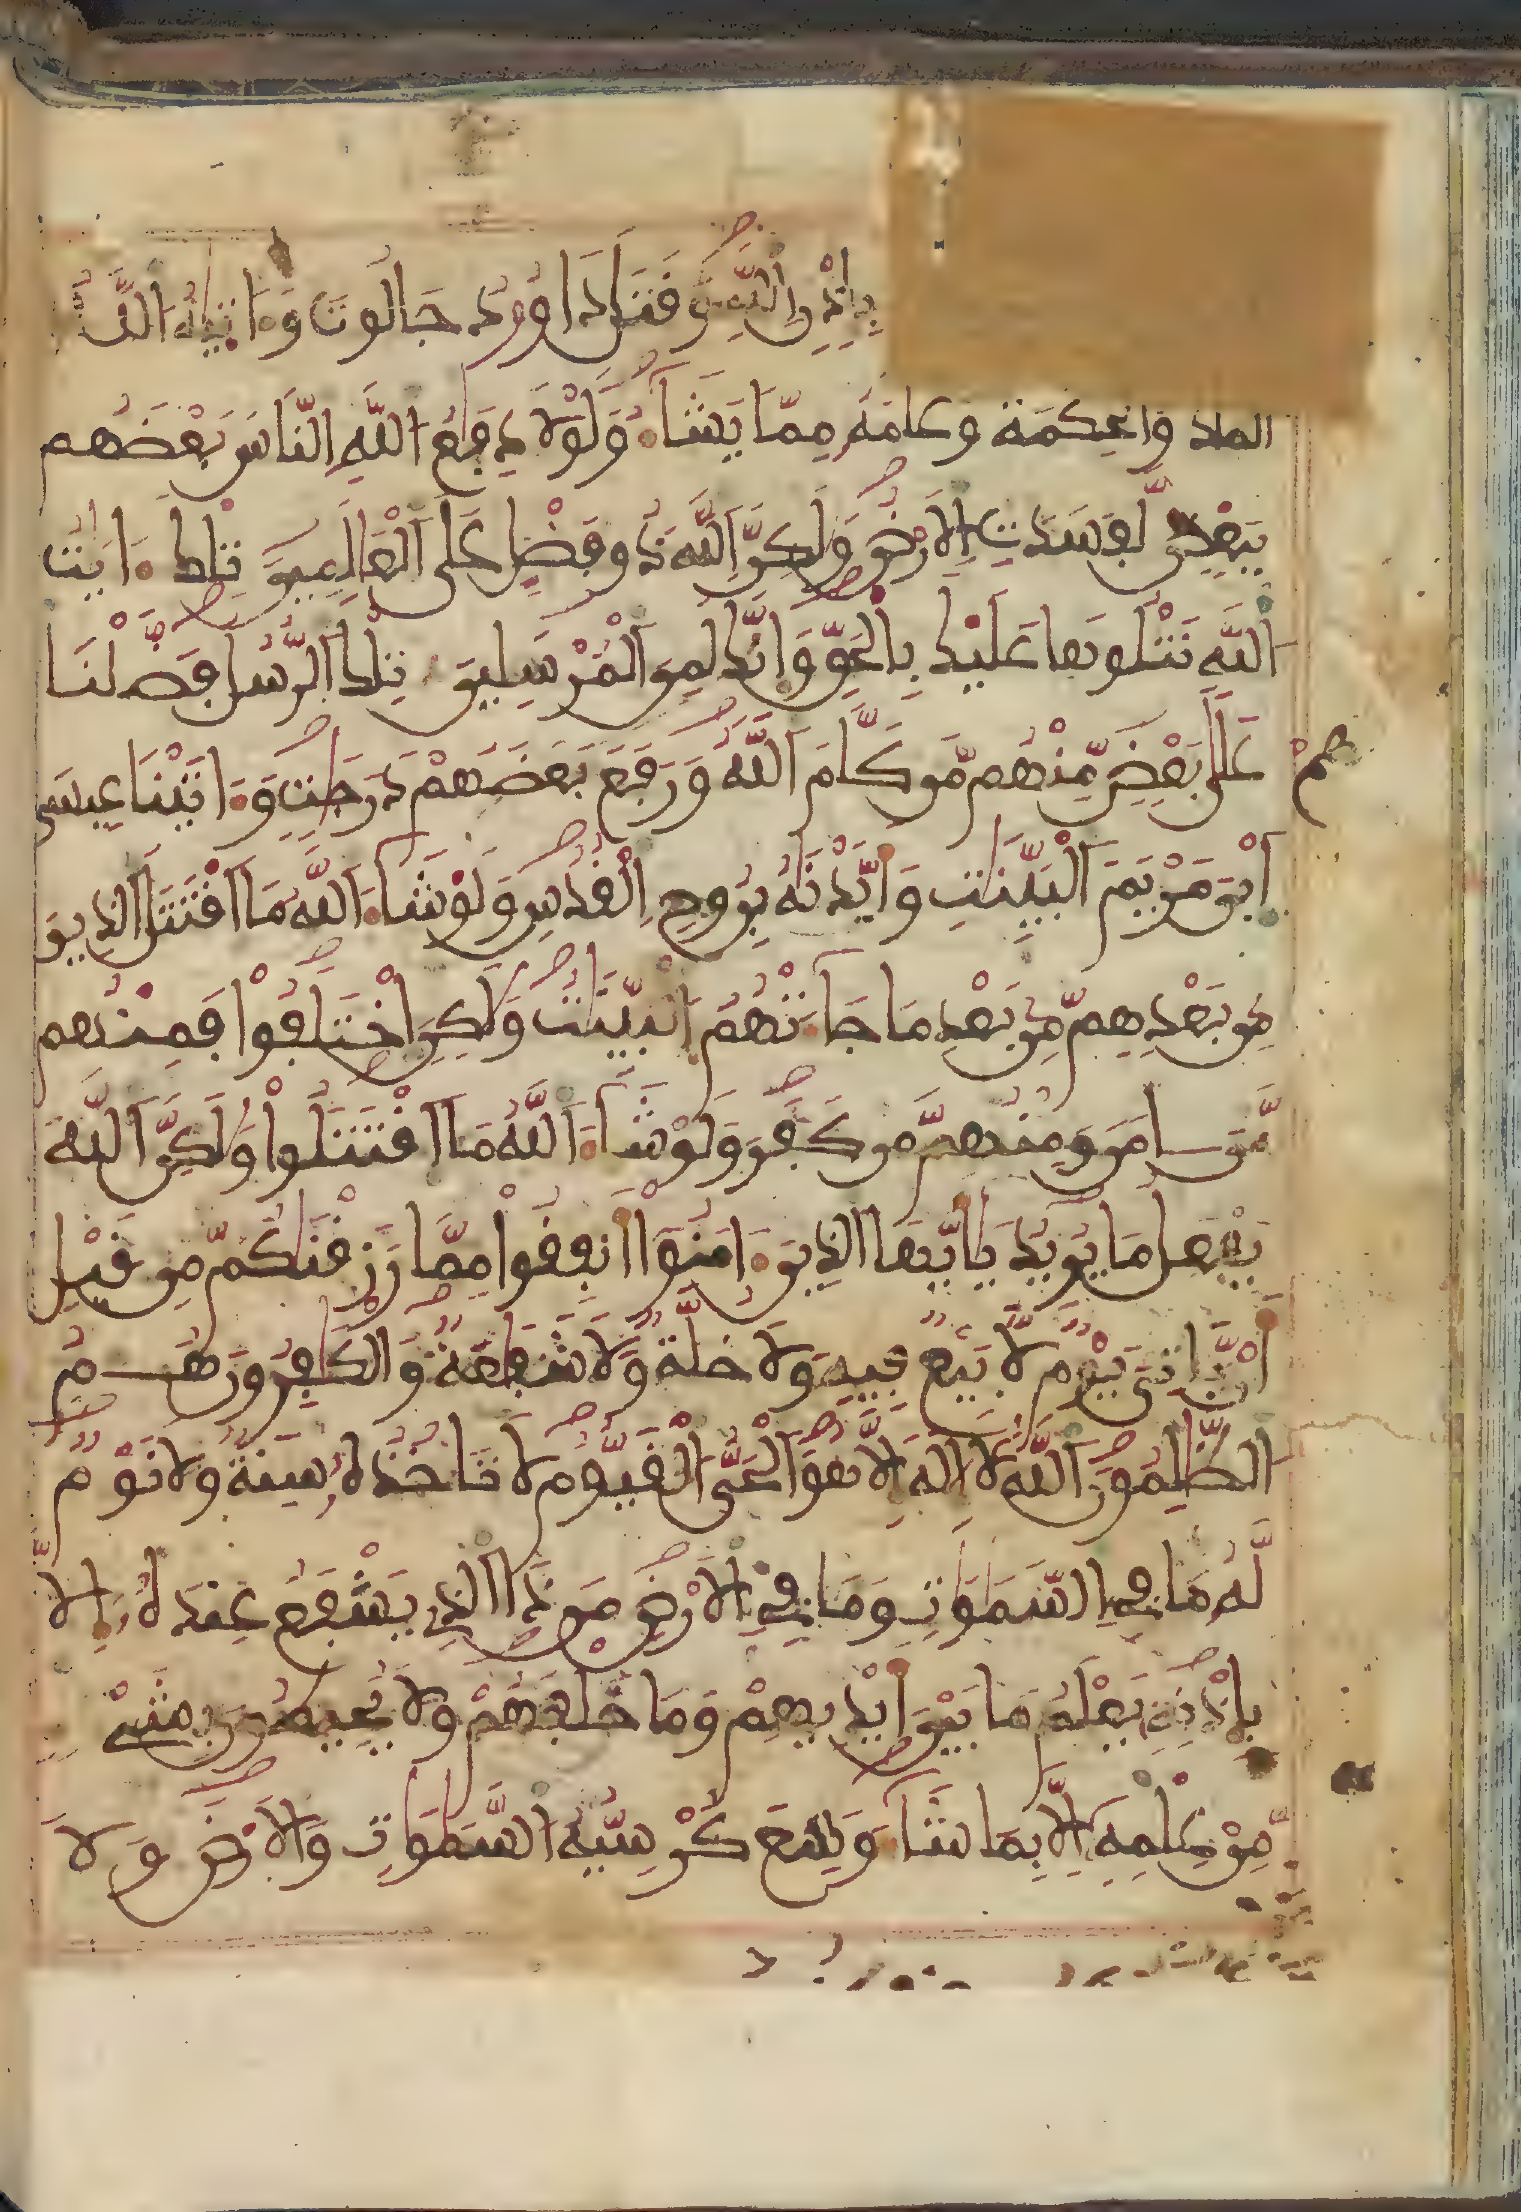 بِإِذْنِ اِ۬للَّهِ وَقَتَلَ دَاوُۥدُ جَالُوتَ وَءَاتَيٰهُ اُ۬للَّهُ
الملك والحِكمَة وعلمَهُۥ مِمَّا يَشَآءُ وَلَوْلَا دِفَٰعُ اُ۬للَّهِ اِ۬لنَّاسَ بَعْضَهُم
بِبَعْضٖ لَّفَسَدَتِ اِ۬لَارْضُ وَلَٰكِنَّ اَ۬للَّهَ ذُو فَضْلٍ عَلَى اَ۬لْعَٰلَمِينَ تِلْكَ ءَايَٰتُ
اُ۬للَّهِ نَتْلُوهَا عَلَيْكَ بِالْحَقِّ وَإِنَّكَ لَمِنَ اَ۬لْمُرْسَلِينَ تِلْكَ اَ۬لرُّسُلُ فَضَّلْنَا
بَعْضَهُمْ عَلَىٰ بَعْضٖ مِّنْهُم مَّن كَلَّمَ اَ۬للَّهُ وَرَفَعَ بَعْضَهُمْ دَرَجَٰتٖ وَءَاتَيْنَا عِيسَى
اَ۪بْنَ مَرْيَمَ اَ۬لْبَيِّنَٰتِ وَأَيَّدْنَٰهُ بِرُوحِ اِ۬لْقُدُسِ وَلَوْ شَآءَ اَ۬للَّهُ مَا اَ۪قْتَتَلَ اَ۬لذِينَ
مِنۢ بَعْدِهِم مِّنۢ بَعْدِ مَا جَآءَتْهُمُ اُ۬لْبَيِّنَٰتُ وَلَٰكِنِ اِ۪خْتَلَفُواْ فَمِنْهُم
مَّنَ ـامَنَ وَمِنْهُم مَّن كَفَرَ وَلَوْ شَآءَ اَ۬للَّهُ مَا اَ۪قْتَتَلُواْ وَلَٰكِنَّ اَ۬للَّهَ
يَفْعَلُ مَا يُرِيدُ يَٰأَيُّهَا اَ۬لذِينَ ءَامَنُوٓاْ أَنفِقُواْ مِمَّا رَزَقْنَٰكُم مِّن قَبْلِ
أَنْ يَّاتِيَ يَوْمٞ لَّا بَيْعٞ فِيهِ وَلَا خُلَّةٞ وَلَا شَفَٰعَةٞ وَالْكَٰفِرُونَ هُمُ
اُ۬لظَّٰلِمُونَ اَ۬للَّهُ لَا إِلَٰهَ إِلَّا هُوَ اَ۬لْحَيُّ اُ۬لْقَيُّومُ لَا تَاخُذُهُۥ سِنَةٞ وَلَا نَوْمٞ
لَّهُۥ مَا فِي اِ۬لسَّمَٰوَٰتِ وَمَا فِي اِ۬لَارْضِ مَن ذَا اَ۬لذِي يَشْفَعُ عِندَهُۥ إِلَّا
بِإِذْنِهِۦ يَعْلَمُ مَا بَيْنَ أَيْدِيهِمْ وَمَا خَلْفَهُمْ وَلَا يُحِيطُونَ بِشَيْءٖ
مِّنْ عِلْمِهِۦ إِلَّا بِمَا شَآءَ وَسِعَ كُرْسِيُّهُ اُ۬لسَّمَٰوَٰتِ وَالَارْضَ وَلَا